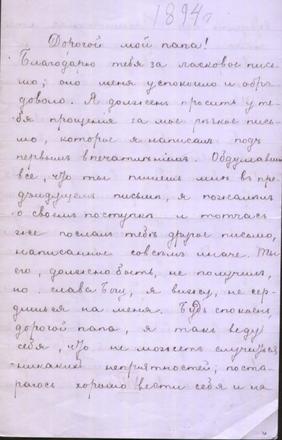 1894 г
Дорогой мой папа!
Благодарю тебя за ласковое пись-
мо; оно меня успокоило и обра-
довало. Я долженъ просить у те-
бя прощения за мое письмо,
которое я написалъ подъ
первымъ впечатлѣнiемъ. Обдумавши
все, что ты пишешь мнѣ въ пре-
дыдущемъ письмѣ, я пожалѣлъ
о своемъ поступкѣ и тотчасъ
же послалъ тебѣ другое письмо,
написанное совсѣмъ иначе. Ты
его, должно быть, не получилъ,
но слава Богу, я вижу, не сер-
дишься на меня. Будь спокоенъ
дорогой папа, я такъ веду
себя, что не можетъ случиться
никакихъ неприятностей; поста-
раюсь хорошо вести себя и на